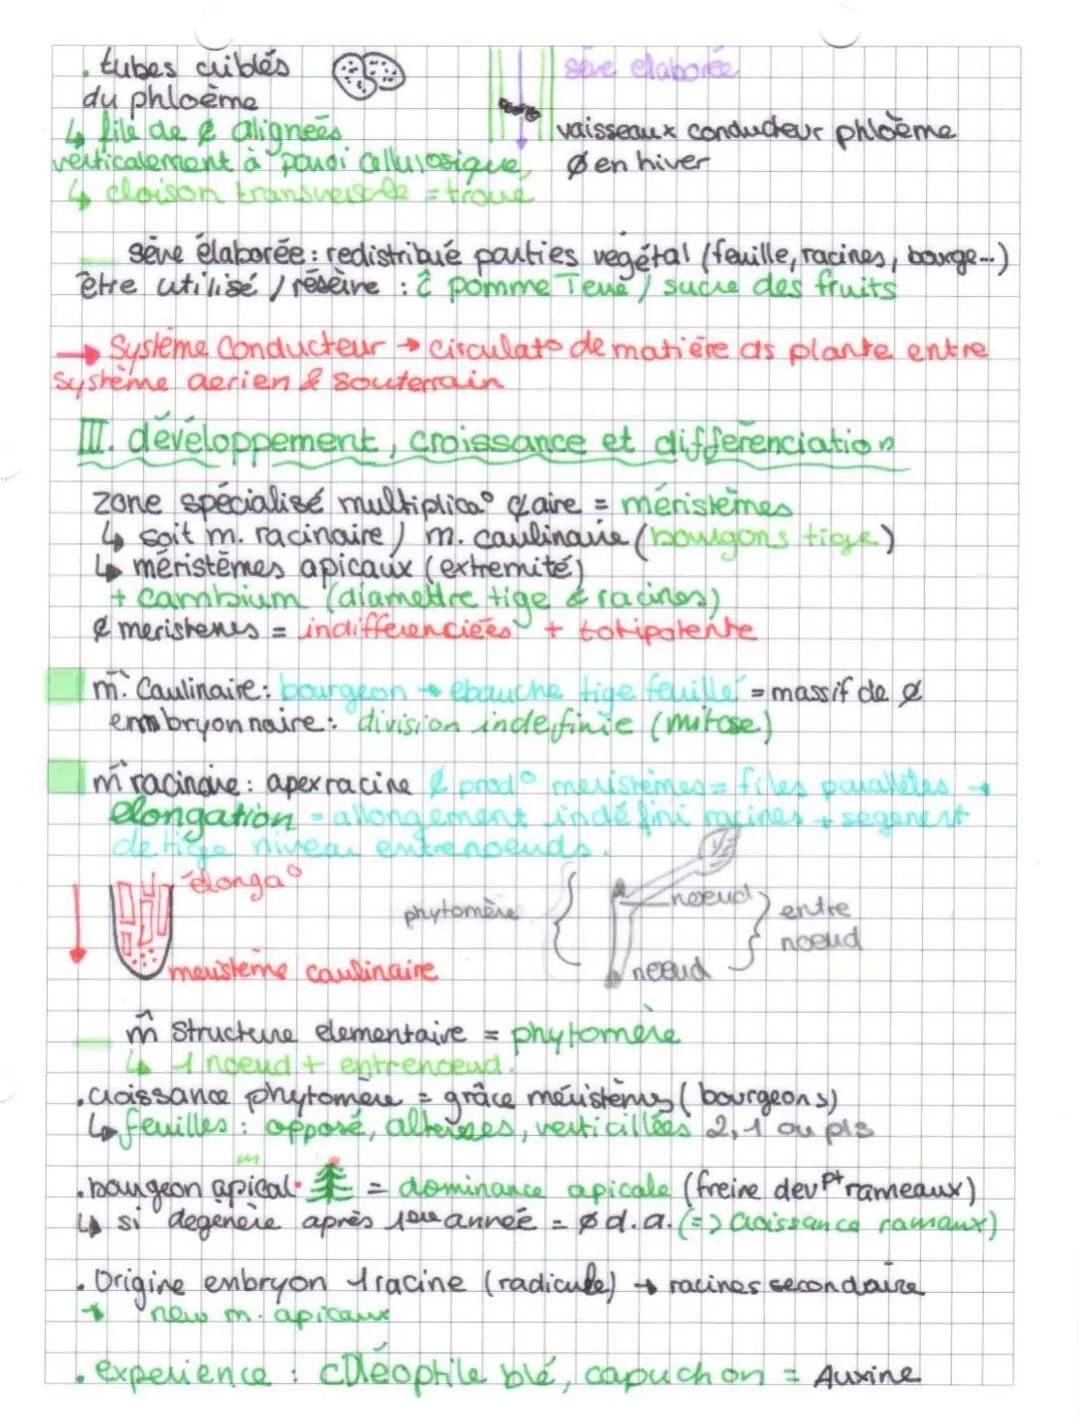 . tubes criblés
du phloème
↳ file de ȼ alignées
verticalement à paroi cellulosique
↳ cloison transversale = troué
sève elaborée
vaisseaux conducteur phloème
Ø en hiver
sève élaborée : redistribué parties vegétal (feuille, racines, bourge...)
être utilisé / réserve : ĉ pomme Terre / sucre des fruits
→ Système Conducteur → circulat° de matière ds plante entre
système aerien & souterrain
III. développement, croissance et differenciation
zone spécialisé multiplica° ȼaire = méristèmes
↳ soit m. racinaire / m. caulinaire (bourgons tige)
↳ méristèmes apicaux (extremité)
+ cambium (diamettre tige & racines)
ȼ meristemes = indifferenciées + totipotente
m. Caulinaire : bourgeon → ebauche tige feuillé = massif de ȼ
embryonnaire : division indefinie (mitose)
m racinaire : apex racine ȼ prod° meristèmes = files parallèles →
élongation = allongement indéfini racines + segement
de tige niveau entrenoeuds.
élonga°
meristeme caulinaire
phytomère
noeud
entre
noeud
noeud
m̂ Structure elementaire = phytomère
↳ 1 noeud + entrenoeud.
. croissance phytomère = grâce méristèmes (bourgeons)
↳ feuilles : opposé, alternes, verticillées 2, 1 ou pls
m
. bourgeon apical = dominance apicale (freine devpt rameaux)
↳ si dégénère après 1ère année = Ø d.a. (=> croissance ramaux)
. Origine embryon 1 racine (radicule) → racines secondaire
→ new m. apicaux
. experience : coléoptile blé, capuchon = Auxine